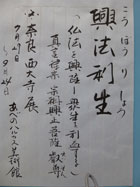 興法利生
こうほうりしょう
「仏法を興隆し衆生利益する」
真言律宗 宗祖興正菩薩 叡尊
奈良 西大寺展
7月29日
～9月24日
あべのハルカス美術館